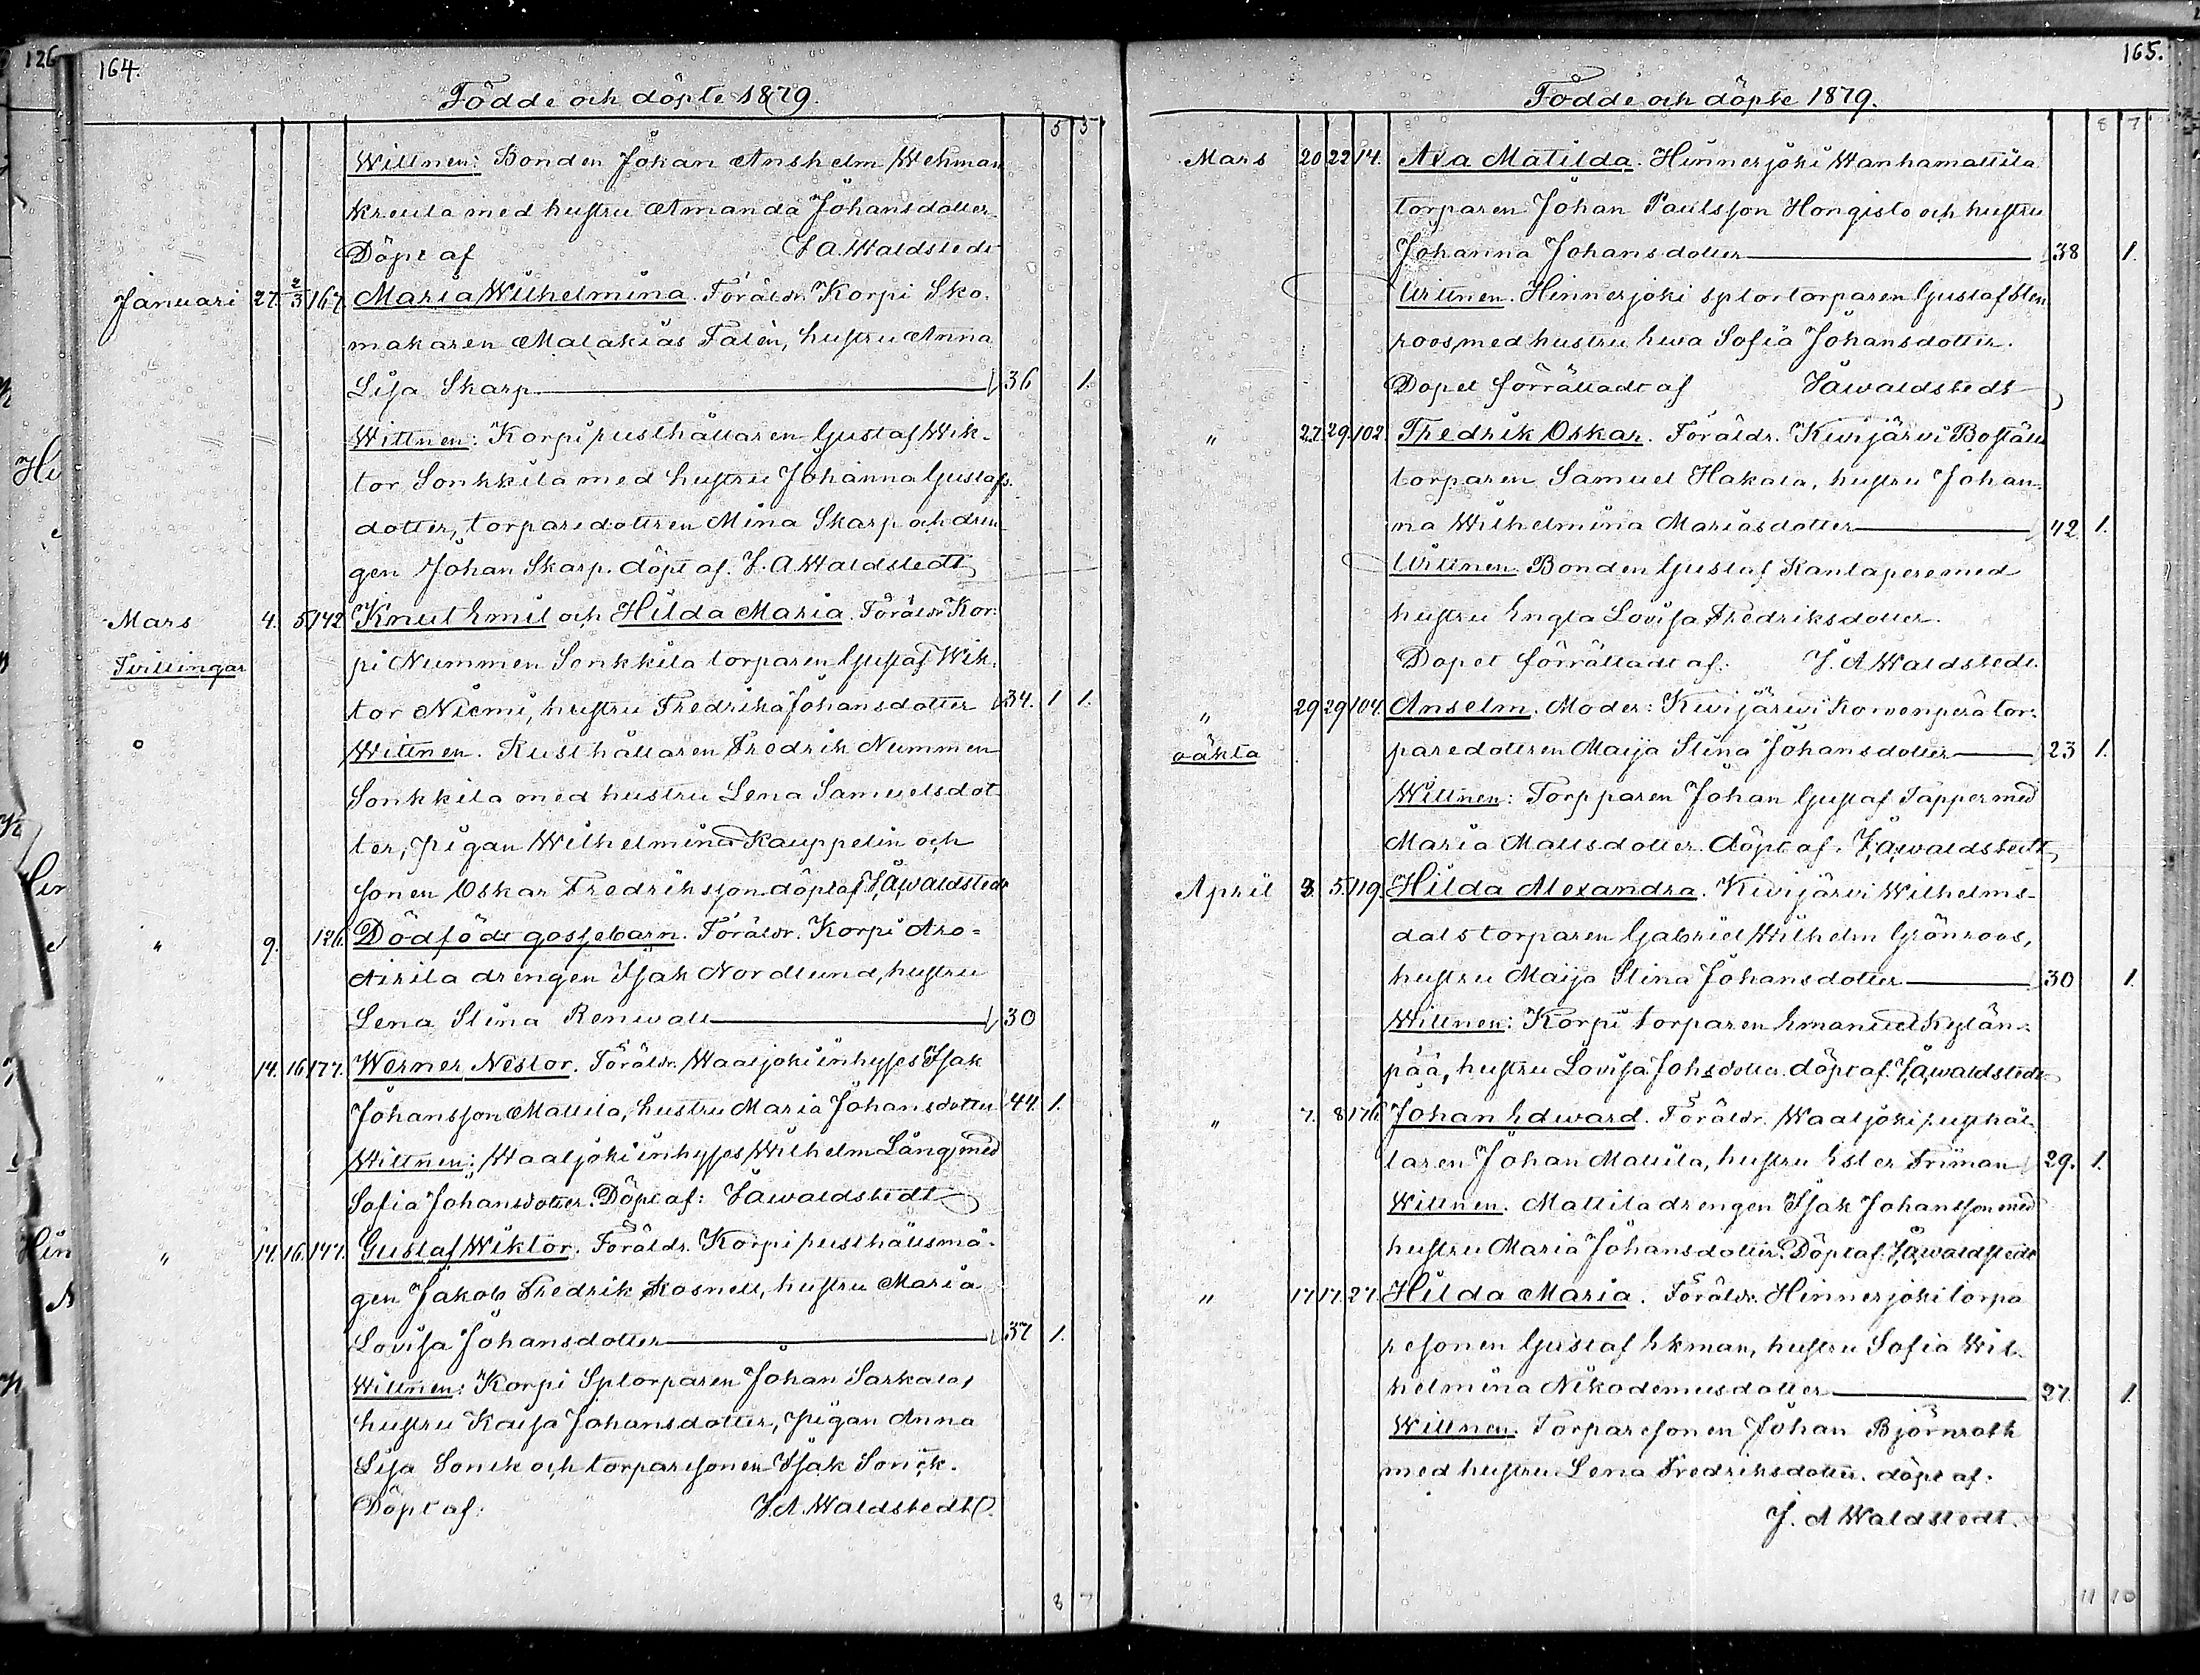 126
164.
Födde och döpte 1879.
5 5
Wittnen: Bonden Johan Anshelm Wehman
Kreula med hustru Amanda Johansdotter
Döpt af J A Waldstedt
Januari 27. 2/3 167. Maria Wilhelmina. Föräldr. Korpi Sko-
makaren Malakias Falén, hustru Anna
Lisa Skarp 36 1.
Wittnen: Korpi rusthållaren Gustaf Wik-
tor Sonkkila med hustru Johanna Gustafs-
dotter, torparedottren Mina Skarp och dren-
gen Johan Skarp. döpt af. J. A Waldstedt
Mars 4. 5. 142 Knut Emil och Hilda Maria. Föräldr Kor-
Tvillingar pi Nummen Sonkkila torparen Gustaf Wik-
tor Niemi, hustru Fredrika Johansdotter 34. 1 1.
Wittnen. Rusthållaren Fredrik Nummen
Sonkkila med hustru Lena Samuelsdot-
ter, pigan Wilhelmina Kauppelin och
sonen Oskar Fredriksson döpt af J A Waldstedt
" 9. 126. Dödfödt gossebarn. Föräldr. Korpi Aro-
Airila drengen Isak Nordlund, hustru
Lena Stina Renwall 30
" 14. 16. 177. Werner Nestor. Föräldr. Waaljoki inhyses Isak
Johansson Mattila, hustru Maria Johansdotter 44. 1.
Wittnen: Waaljoki inhyses Wilhelm Lång med
Sofia Johansdotter. Döpt af: J A Waldstedt
" 14. 16. 147. Gustaf Wiktor. Föräldr. Korpi rusthållsmå-
gen Jakob Fredrik Rosnell, hustru Maria
Lovisa Johansdotter 37 1.
Wittnen: Korpi Sptorparen Johan Sarkala,
hustru Kaisa Johansdotter, pigan Anna
Lisa Sonck och torparesonen Isak Sonck.
Döpt af: J. A. Waldstedt
8 7
165.
Födde och döpte 1879.
8 7
Mars 20 22 14. Ada Matilda. Hinnerjoki Wanhamattila
torparen Johan Paulsson Hongisto och hustru
Johanna Johansdotter 38 1.
Wittnen. Hinnerjoki sptortorparen Gustaf Sten
roos, med hustru Ewa Sofia Johansdotter.
Dopet förrättadt af J A Waldstedt
" 27. 29. 102. Fredrik Oskar. Föräldr. Kivijärvi Boställs
torparen Samuel Hakala, hustru Johan-
na Wilhelmina Mariasdotter 42 1.
Wittnen. Bonden Gustaf Rantapere med
hustru Engla Lovisa Fredriksdotter.
Dopet förrättadt af. J. A Waldstedt.
" 29 29 104. Anselm. Moder: Kivijärvi Korvenperä tor-
oäkta paredottren Maija Stina Johansdotter 23 1.
Wittnen: Torpparen Johan Gustaf Tapper med
Maria Mattsdotter. döpt af. J A Waldstedt
April 3. 5. 119. Hilda Alexandra. Kivijärvi Wilhelms-
dals torparen Gabriel Wilhelm Grönroos,
hustru Maija Stina Johansdotter 30 1.
Wittnen: Korpi torparen Emanuel Kylän-
pää, hustru Lovisa Johsdotter. döpt af. J A Waldstedt
" 7. 8. 176. Johan Edward. Föräldr. Waaljoki rusthål-
laren Johan Mattila, hustru Ester Friman 29. 1.
Wittnen. Mattila drengen Isak Johansson med
hustru Maria Johansdotter. Döpt af. J A Waldstedt
" 17 17. 27. Hilda Maria. Föräldr. Hinnerjoki torpa
resonen Gustaf Ekman, hustru Sofia Wil-
helmina Nikodemusdotter 27. 1.
Wittnen. Torparesonen Johan Björnroth
med hustru Lena Fredriksdotter. döpt af.
J. A Waldstedt.
11 10